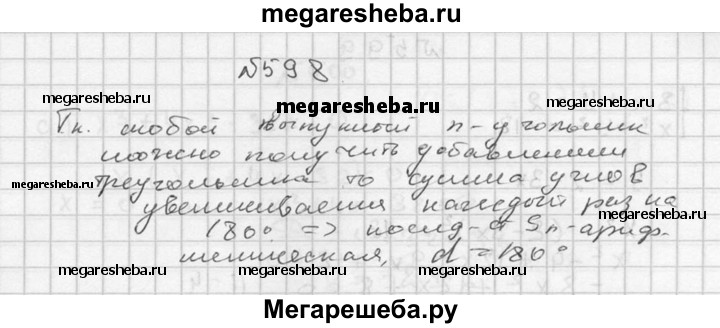 megaresheba.ru
№598
megaresheba.ru
megaresheba.ru
megaresheba.ru
Т.к. любой выпуклый n-угольник
можно получить добавлением
megaresheba.ru
треугольника то сумма углов
увеличивается каждый раз на
megaresheba.ru
180° => послед-ть Sn-ариф-
метическая, d=180°
megaresheba.ru
megaresheba.ru
Мегарешеба.ру